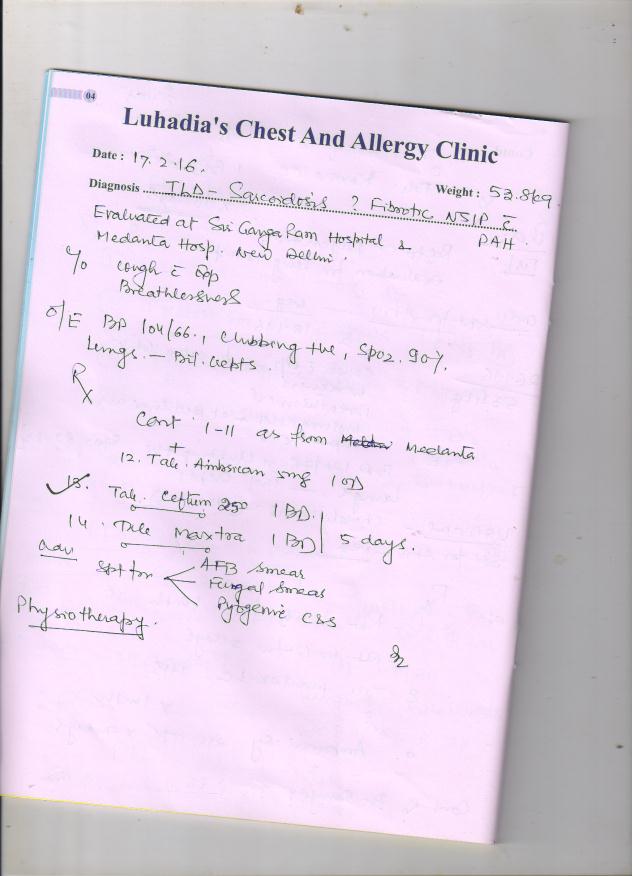 04
Luhadia's Chest And Allergy Clinic
Date : 17.2.16.
Diagnosis ILD - Sarcoidosis ? Fibrotic NSIP c̄ Weight : 53.8kg.
PAH.
Evaluated at Sri Ganga Ram Hospital &
Medanta Hosp. New Delhi.
c/o cough c̄ Exp
Breathlessness
O/E BP 104/66., Clubbing +ve, SpO2. 90%.
Lungs. - Bil. Crepts.
Rx
Cont 1-11 as from Medanta
+
12. Tab. Ambrican 5mg 1 OD
13. Tab. Ceftum 250 1 BD.
14. Maxtra 1 BD 5 days.
Adv
Spt for AFB smear
Fungal Smear
Pyogenic C&S
Physiotherapy.